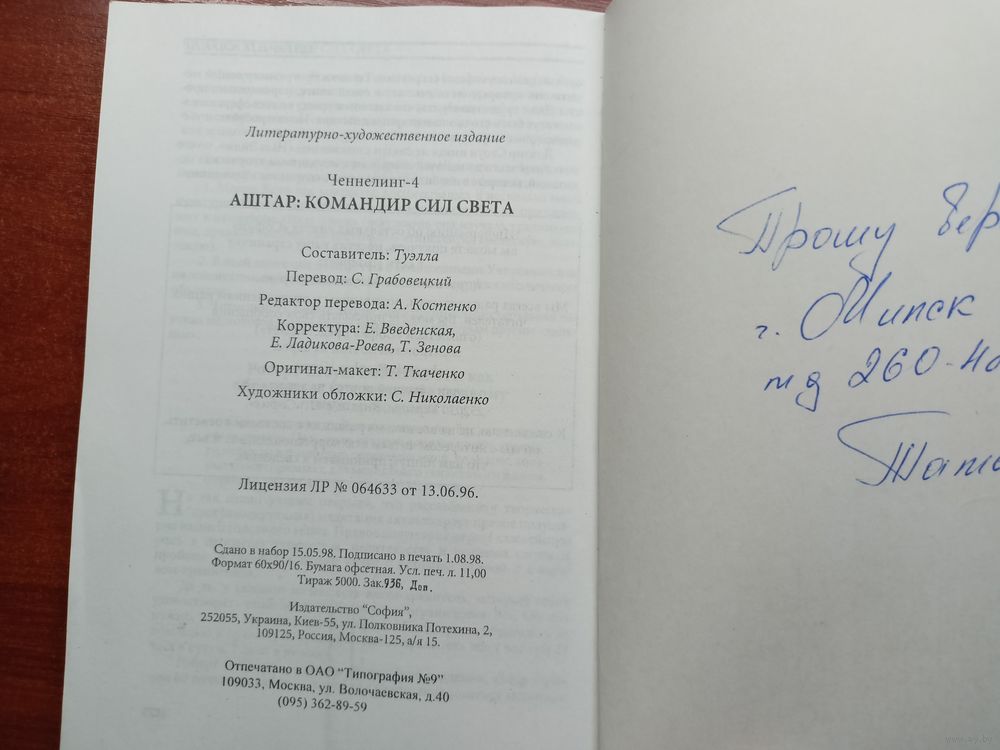 Литературно-художественное издание
Ченнелинг-4
АШТАР: КОМАНДИР СИЛ СВЕТА
Составитель: Туэлла
Перевод: С. Грабовецкий
Редактор перевода: А. Костенко
Корректура: Е. Введенская,
Е. Ладикова-Роева, Т. Зенова
Оригинал-макет: Т. Ткаченко
Художники обложки: С. Николаенко
Лицензия ЛР № 064633 от 13.06.96.
Сдано в набор 15.05.98. Подписано в печать 1.08.98.
Формат 60х90/16. Бумага офсетная. Усл. печ. л. 11,00
Тираж 5000. Зак.936, Доп.
Издательство "София",
252055, Украина, Киев-55, ул. Полковника Потехина, 2,
109125, Россия, Москва-125, а/я 15.
Отпечатано в ОАО "Типография №9"
109033, Москва, ул. Волочаевская, д.40
(095) 362-89-59
Прошу
г. Минск
260-40